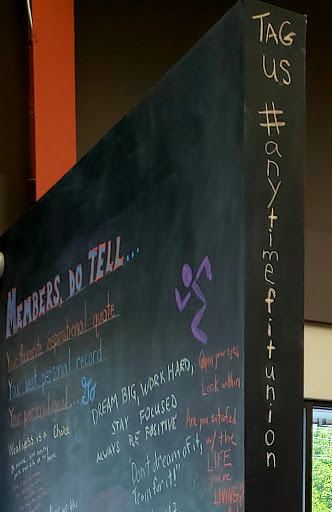 TAG
US
#anytimefitunion
MEMBERS, DO TELL...
Your favorite inspirational quote
Your best personal record
Your personal goal... Go
Weakness is a Choice
DREAM BIG, WORK HARD,
STAY FOCUSED
ALWAYS BE POSITIVE
Don't dream of it,
Train for it!"
Open your eyes,
Look within
Are you satisfied
w/ the
LIFE
you're
LIVING?